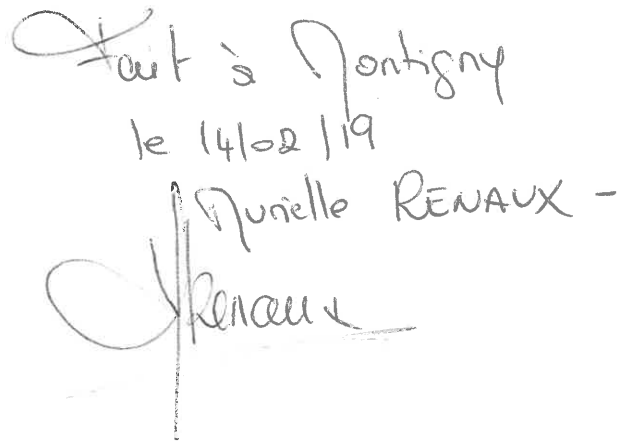 Fait à Montigny
le 14/02/19
Murielle RENAUX -
Renaux